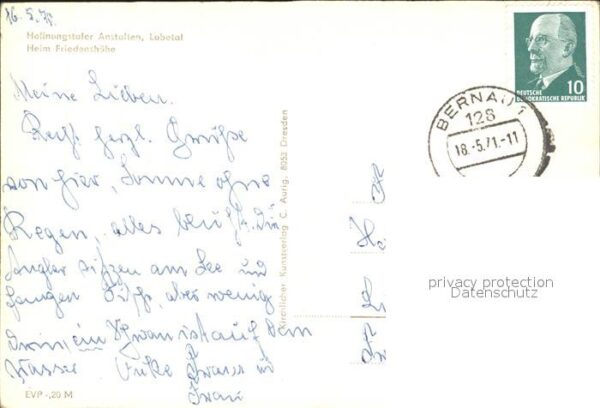 16.5.71
Hoffnungstaler Anstalten, Lobetal
Heim Friedenshöhe
Meine Lieben.
Rech herzl. Grüße
von hier, Sonne ohne
Regen, alles blüht. Die
Angler sitzen am See und
fangen Fische, aber wenig
drin, ein Schwan ist auf dem
Wasser. und
EVP -,20 M
Kirchlicher Kunstverlag C. Aurig, 8053 Dresden
DEUTSCHE
DEMOKRATISCHE REPUBLIK
10
BERNAU 1
128
18.-5.71.-11
privacy protection
Datenschutz